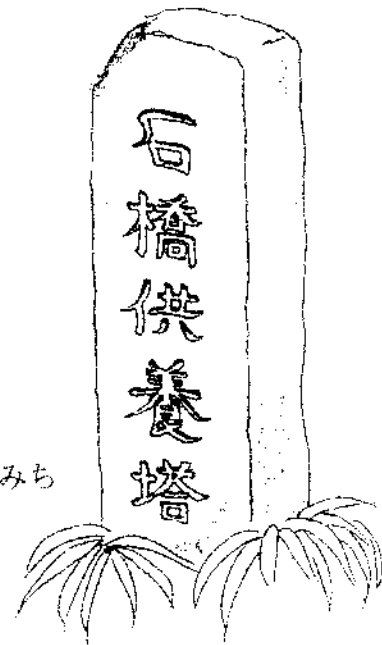 石橋供養塔
みち